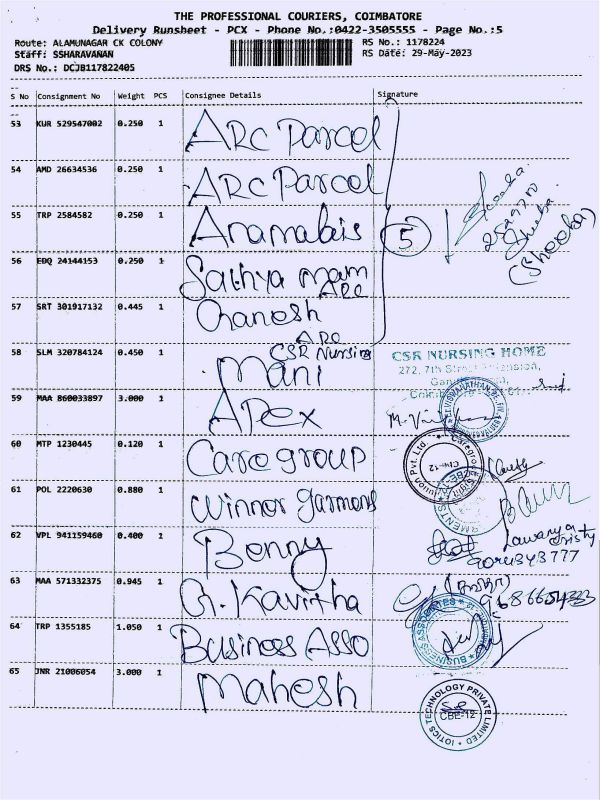 THE PROFESSIONAL COURIERS, COIMBATORE
Delivery Runsheet - PCX - Phone No.:0422-3505555 - Page No.:5
Route: ALAMUNAGAR CK COLONY RS No.: 1178224
Staff: SSHARAVANAN RS Date: 29-May-2023
DRS No.: DCJB117822405
S No Consignment No Weight PCS Consignee Details Signature
53 KUR 529547002 0.250 1 ARC Parcel
54 AMD 26634536 0.250 1 ARC Parcel
55 TRP 2584582 0.250 1 Anamalais
5
(Shooba)
56 EDQ 24144153 0.250 1 Sathya mam
ARC
57 SRT 301917132 0.445 1 Ganesh
ARC
58 SLM 320784124 0.450 1 Mani
CSR Nursing
CSR NURSING HOME
272, 7th Street Extension,
59 MAA 860033897 3.000 1 APex
60 MTP 1230445 0.120 1 Care group
CBE-12
61 POL 2220630 0.880 1 Winner garmens
62 VPL 941159460 0.400 1 Benny
Lawanya
63 MAA 571332375 0.945 1 G. Kavitha
64 TRP 1355185 1.050 1 Business Asso
BUSINESS ASSOCIATES
65 JNR 21006054 3.000 1 Mahesh
IOTICS TECHNOLOGY PRIVATE LIMITED
CBE-12